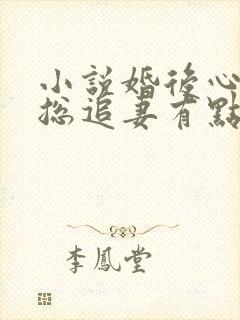 小說婚後心
總追妻有點
李鳳堂